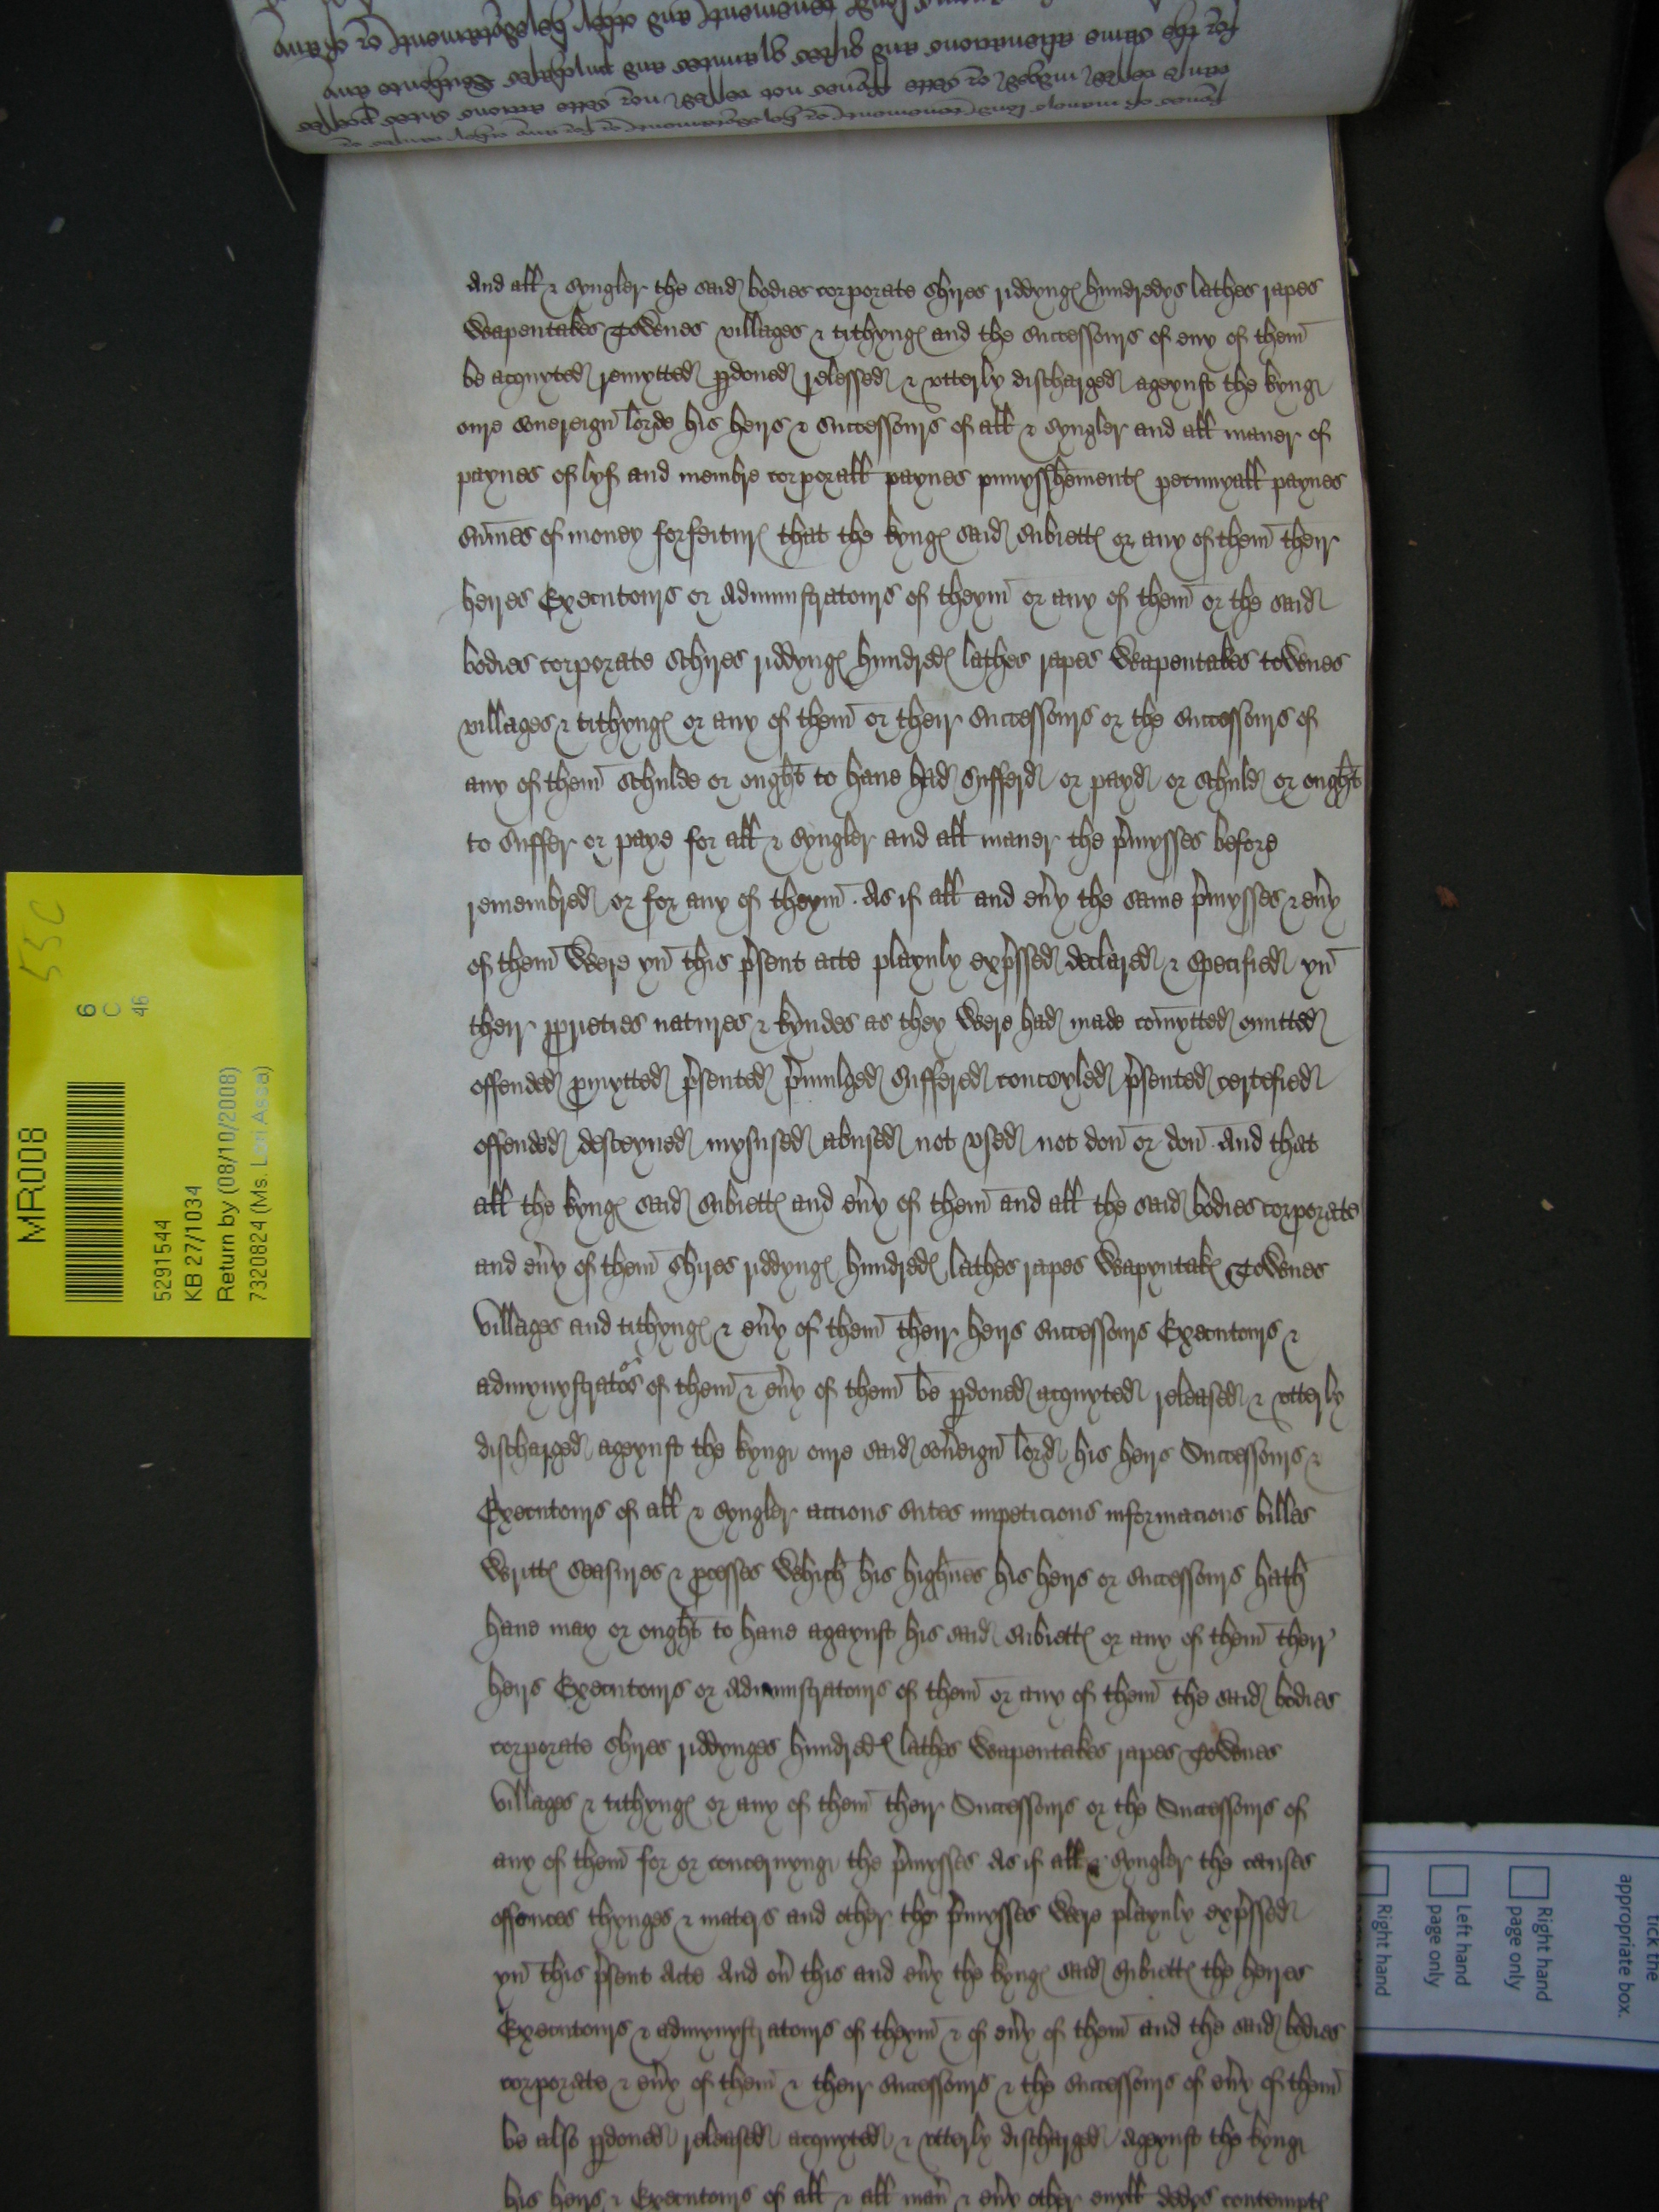 And all & Syngler the said bodies corporate Shires riddynges hundredys lathes rapes
Weapentakes Townes villages & tithynges and the Successours of eny of them
be acquyted remytted pdoned relessed & vtterly discharged ageynst the kyng
oure souereign lorde his heirs & Successours of all & Syngler and all maner of
paynes of lyf and membre corporall paynes punysshementes pecunyall paynes
Sumes of money forfeitures that the kynges said Subiettes or any of them their
heires Executours or Administratours of theym or any of them or the said
bodies corporate Schires riddynges hundredes lathes rapes Weapentakes townes
villages & tithynges or any of them or their Successours or the Successours of
any of them Schulde or ought to haue had Sufferd or payd or Schuld or ought
to Suffer or paye for all & Syngler and all maner the pmysses before
remembred or for any of theym. As if all and euy the same pmysses & euy
of them Were yn this psent acte playnly expssed declared & Specified yn
their pprieties natures & kyndes as they Were had made comytted omitted
offended pmytted psented Suffered conceyled psented certefied
offended desceyned mysused abused not vsed not don or don. And that
all the kynges said Subiettes and euy of them and all the said bodies corporate
and euy of them Shires riddynges hundredes lathes rapes Weapyntakes Townes
Villages and tithynges & euy of them their heirs Successours Executours &
admynystratours of them & euy of them be pdoned acquyted released & vtterly
discharged ageynst the kyng oure said soueign lord his heirs Successours &
Executours of all & Syngler accions Sutes impeticions informacions billes
Writtes Seasures & pcesses Which his highnes his heirs or Successours hath
haue may or ought to haue agaynst his said Subiettes or any of them their
heirs Executours or Administratours of them or any of them the said bodies
corporate Shires riddynges hundredes lathes Weapentakes rapes Townes
Villages & tithynges or any of them their Successours or the Successours of
any of them for or concernyng the pmysses As if all & Syngler the causes
offences thynges & maters and other the pmysses Were playnly expssed
yn this psent Acte And ou this and euy the kynges said Subiettes the heires
Executours & admynystratours of theym & of euy of them and the said bodies
corporate & euy of them & their Successours & the Successours of euy of them
be also pdoned released acquyted & vtterly discharged Ageynst the kyng
his heirs & Executours of all & all man & euy other euyll dedys contemptes
MR008
55C
6
C
46
5291544
KB 27/1034
Return by (08/10/2008)
7320824 (Ms. Lori Assa)
tick the
appropriate box.
Right hand
page only
Left hand
page only
Right hand